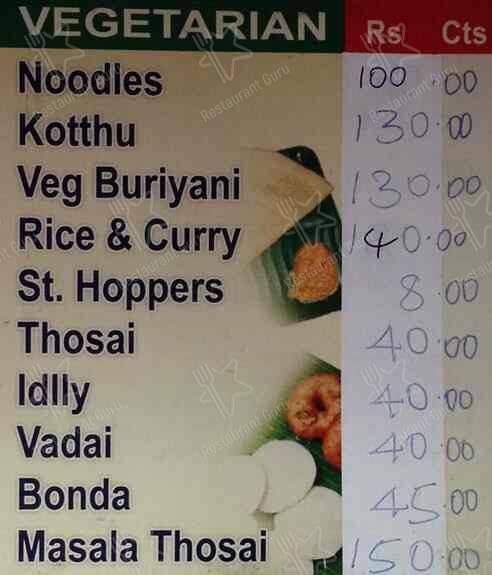 VEGETARIAN Rs Cts
Noodles 100.00
Kotthu 130.00
Veg Buriyani 130.00
Rice & Curry 140.00
St. Hoppers 8.00
Thosai 40.00
Idlly 40.00
Vadai 40.00
Bonda 45.00
Masala Thosai 150.00
Restaurant Guru